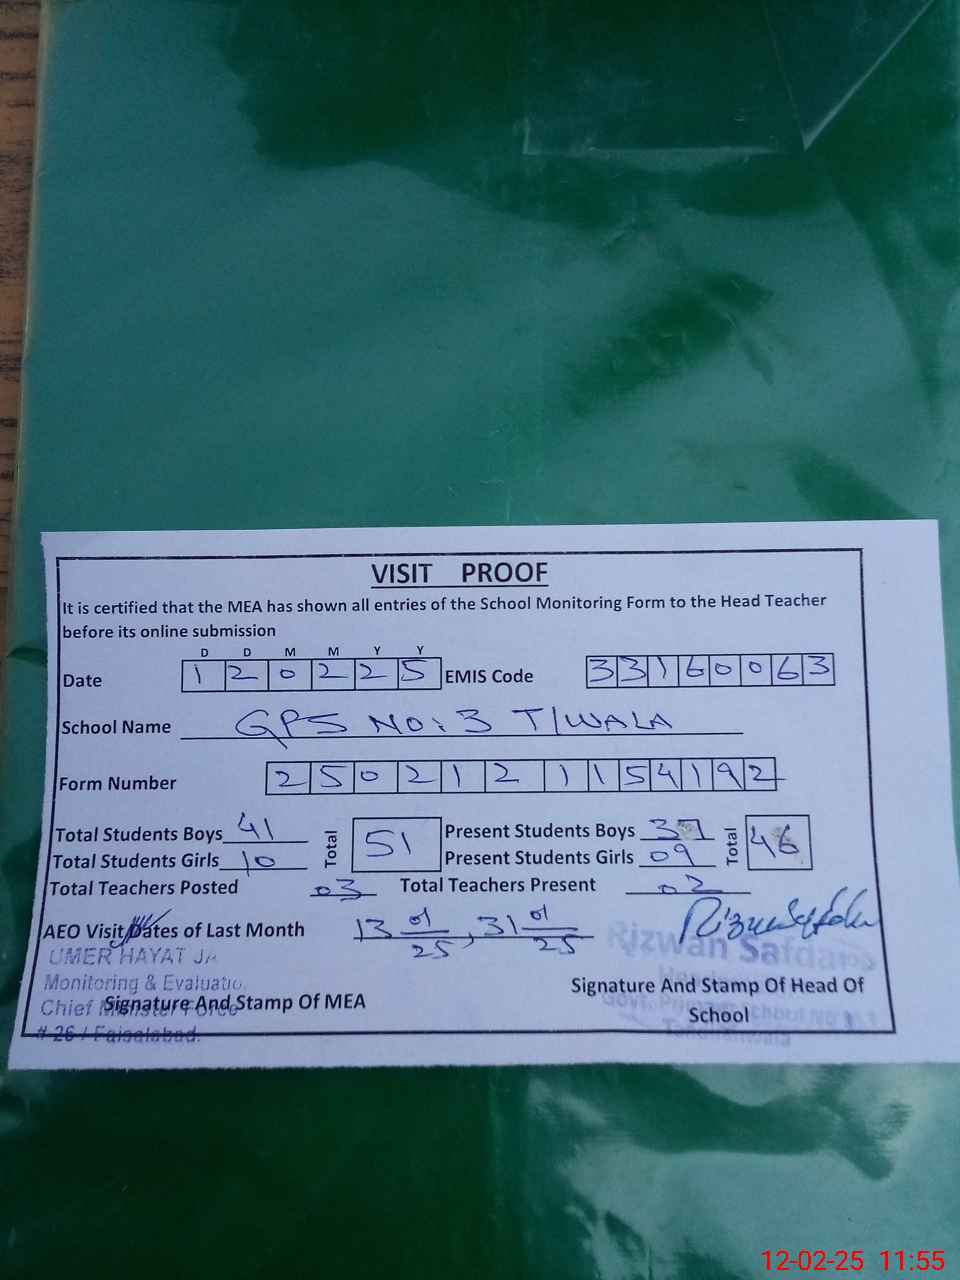 VISIT PROOF
It is certified that the MEA has shown all entries of the School Monitoring Form to the Head Teacher
before its online submission
D D M M Y Y
Date 1 2 0 2 2 5 EMIS Code 3 3 1 6 0 0 6 3
School Name GPS NO: 3 T/WALA
Form Number 2 5 0 2 1 2 1 1 5 4 1 9 2
Total Students Boys 41 Total 51 Present Students Boys 37 Total 46
Total Students Girls 10 Present Students Girls 09
Total Teachers Posted 03 Total Teachers Present 02
AEO Visit Dates of Last Month 13 01/25, 31 01/25
Rizwan Safdar
UMER HAYAT
Monitoring &
Signature And Stamp Of MEA
Chief Minister Force
# 26 / Faisalabad.
Signature And Stamp Of Head Of
School
Govt. Primary School No
Tandlianwala
12-02-25 11:55